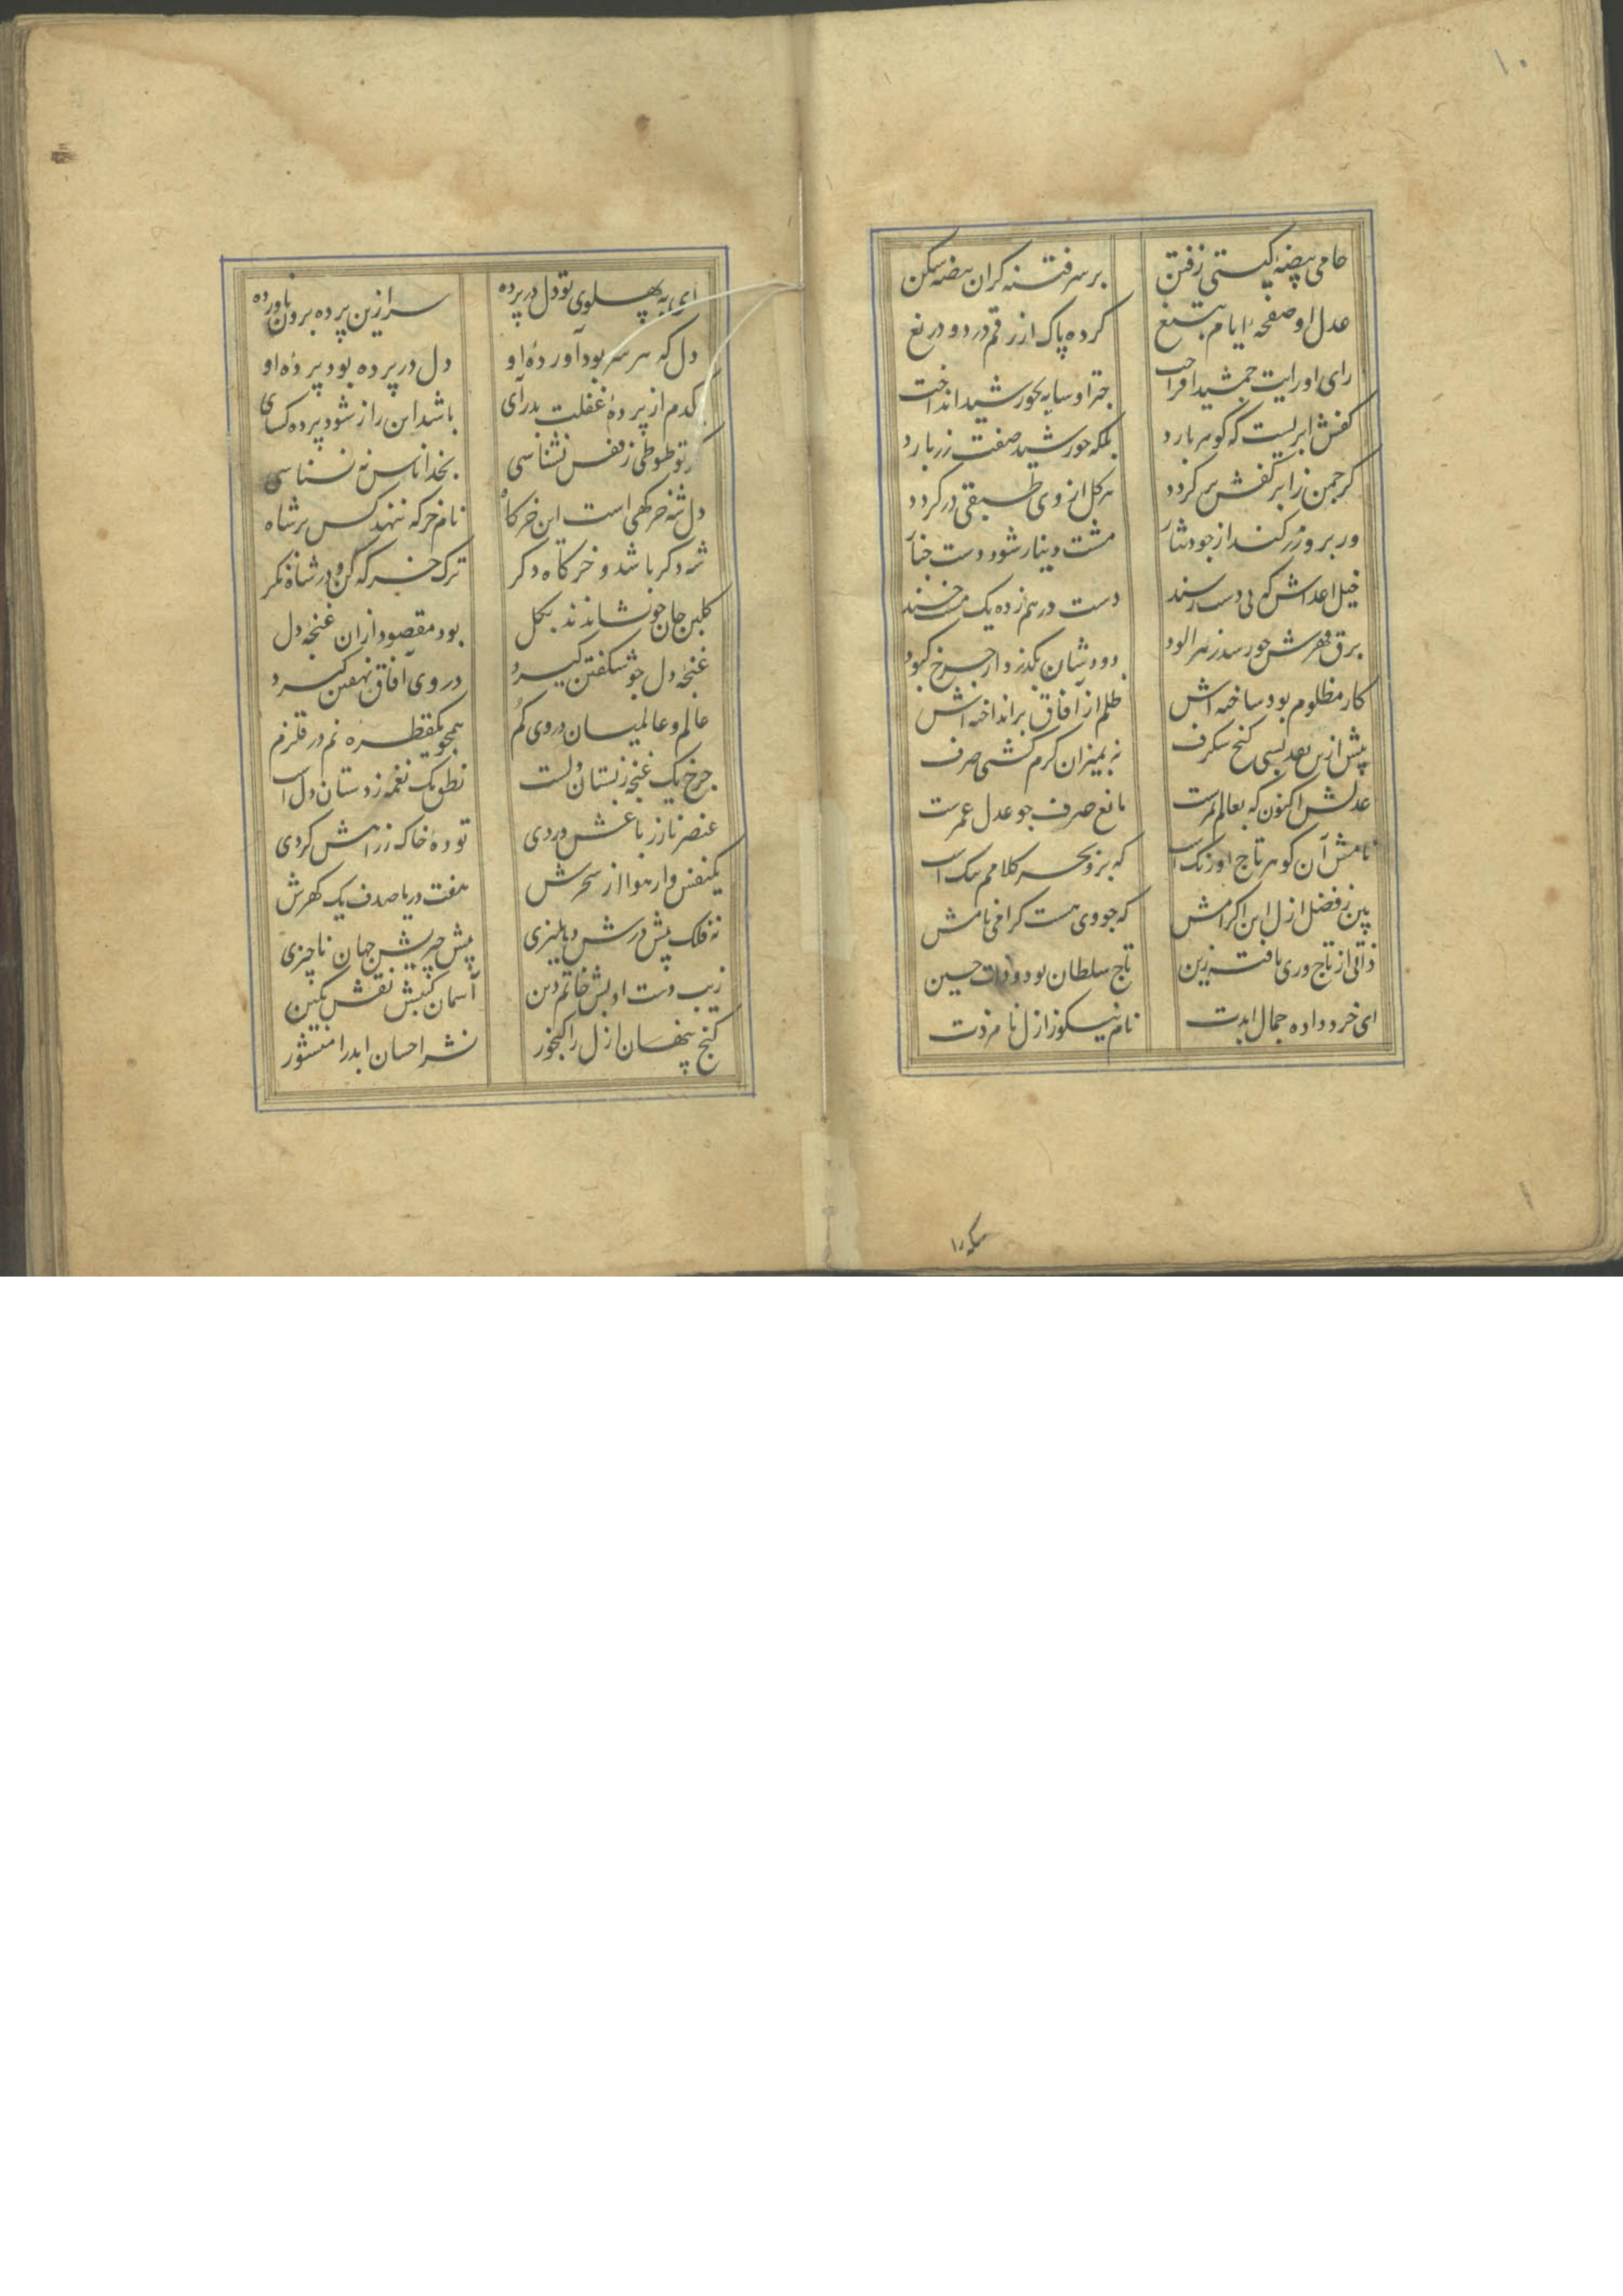 ۱۰
حامی بیضهٔ کیستی زفتن بر سر فتنه کران بیضه شکن
عدل او صفحهٔ ایام بتیغ کرده پاک از رقم درد و دریغ
رای او رایت جمشید افراخت چتر او سایه بخورشید انداخت
کفش ابریست که کوهر بارد بلکه خورشید صفت زر بارد
کر چمن را بر کفش بر کردد هر کل از وی طبقی زر کردد
ور برو زر کند از جود نثار مشت دینار شود دست چنار
خیل اعداش که بی دست رسند دست در هم زده یک مشت خسند
برق قهرش چو رسد زهر الود دودشان بکذرد از چرخ کبود
کار مظلوم بود ساخته اش ظلم از آفاق برانداخته اش
پیش ازین بعد بسی کنج شکرف نه بمیزان کرم کشتی صرف
عدلش اکنون که بعالم سمرست مانع صرف چو عدل عمرست
نامش آن کوهر تاج اورنک است که بر و بحر کلامم تنک است
بین ز فضل ازل این اکرامش که چو وی هست کرامی نامش
ذاتی از تاج وری یافته زین تاج سلطان بود و ذات حسین
ای خرد داده جمال ابدت نام نیکو ز ازل نامزدت
سکه را
ای به پهلوی تو دل در پرده سر ازین پرده برون ناورده
دل که هر سر بود آوردهٔ او دل در پرده بود پردهٔ او
یکدم از پردهٔ غفلت بدرآی باشد این راز شود پرده کشای
کر تو طوطی ز قفس نشناسی بخدا ناس نه نسناسی
دل شه خرکهی است این خرکاه نام خرکه ننهد کس بر شاه
شه دکر باشد و خرکاه دکر ترک خرکه کن و در شاه نکر
کلبن جان چو نشاندند بکل بود مقصود ازان غنچهٔ دل
غنچهٔ دل چو شکفتن کیرد در وی آفاق نهفتن کیرد
عالم و عالمیان در وی کم همچو یکقطره نم در قلزم
چرخ یک غنچه ز بستان دلست نطق یک نغمه ز دستان دل است
عنصر نار ز باغش وردی تودهٔ خاک ز راهش کردی
یکنفس وار هوا از سحرش هفت دریا صدف یک کهرش
نه فلک پیش درش دهلیزی پیش چیزیش جهان ناچیزی
زیب دست ادبش خاتم دین آسمان کنبش نقش نکین
کنج پنهان ازل را کنجور نشر احسان ابد را منشور